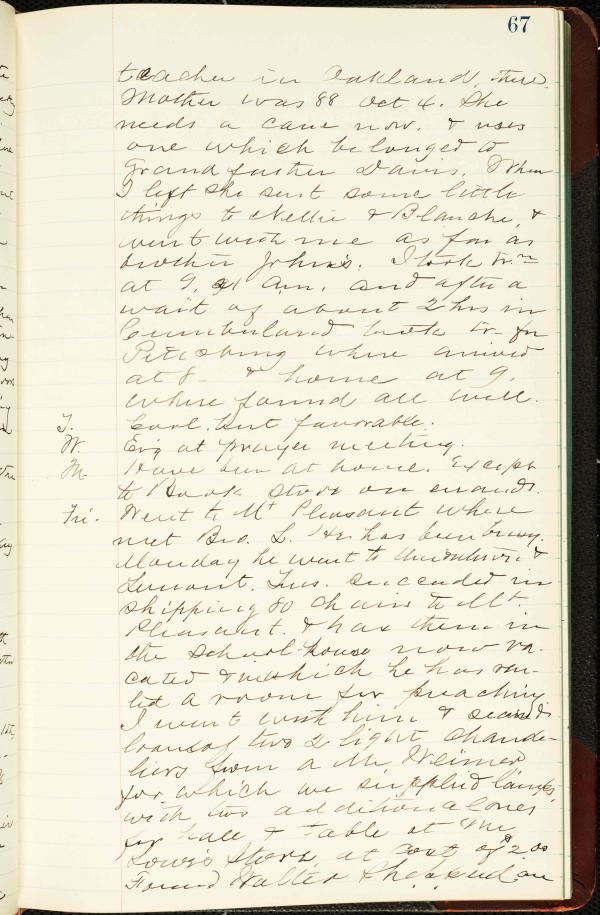 67
teacher in Oakland, there.
Mother was 88 Oct 4. She
needs a cane now. & uses
one which belonged to
Grandfather Davis. When
I left she sent some little
things to Nellie & Blanche, &
went with me as far as
brother John's. I took trn
at 9. am. and after a
wait of about 2 hrs in
Cumberland took tr. for
Pittsburg where arrived
at 8 - & home at 9.
Where found all well.
T. Cool. but favorable.
W. Evg at prayer meeting.
Have been at home. Except
to Book store on errands.
Fri. Went to Mt Pleasant where
met Bro. L. He has been busy.
Monday he went to &
Lemont. Tues. succeeded in
shipping 80 chairs to Mt.
Pleasant. & has them in
the school house now va-
cated & in which he has ren-
ted a room for preaching
I went with him & secured
loan of two 2 light chande-
liers from a Mr Weimer
for which we supplied lamps,
with two additional ones
for hall & table at
Store, at cost of $2.00
Found Walter on